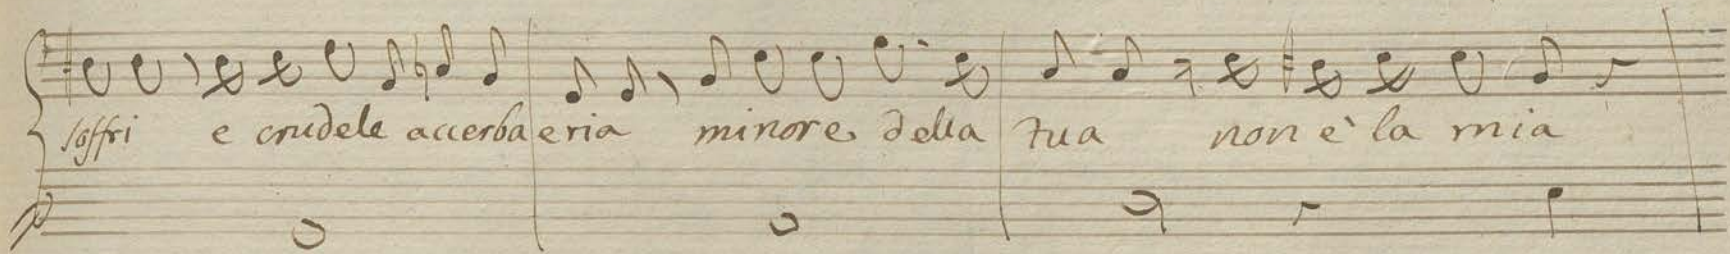 soffri e crudele accerba e ria minore della tua non è la mia